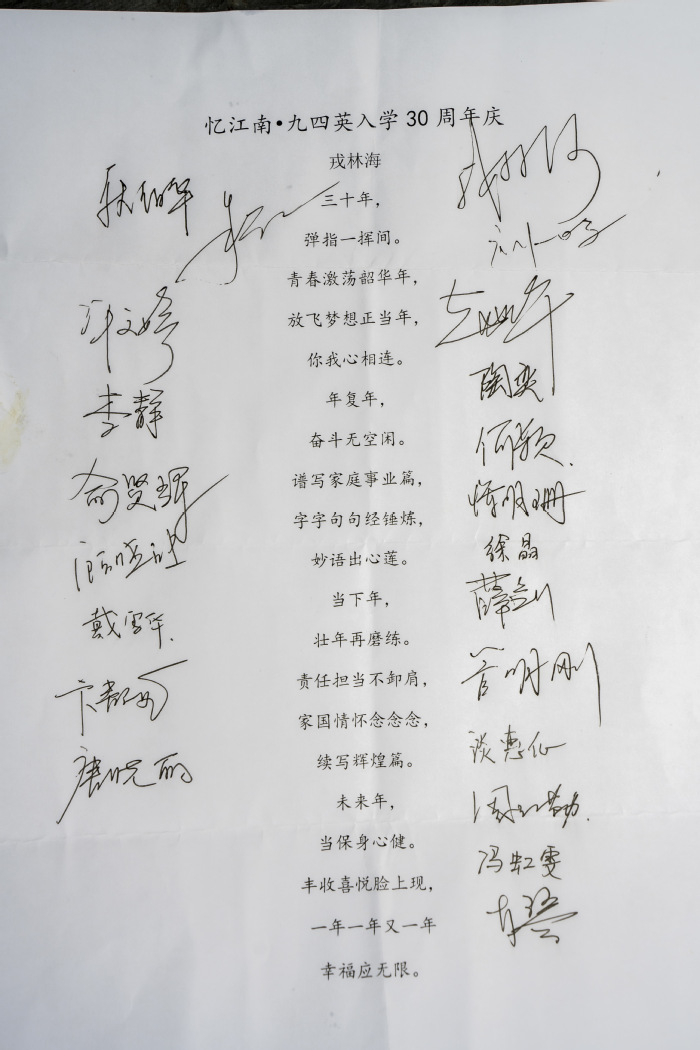 忆江南•九四英入学30周年庆
戎林海
三十年，
弹指一挥间。
青春激荡韶华年，
放飞梦想正当年，
你我心相连。
年复年，
奋斗无空闲。
谱写家庭事业篇，
字字句句经锤炼，
妙语出心莲。
当下年，
壮年再磨练。
责任担当不卸肩，
家国情怀念念念，
续写辉煌篇。
未来年，
当保身心健。
丰收喜悦脸上现，
一年一年又一年
幸福应无限。
李静
俞贤珲
戴雪华.
唐晓丽
戎林海
陶奕
何颖.
恽明珊
徐晶
管明刚
谈惠仙
冯虹雯